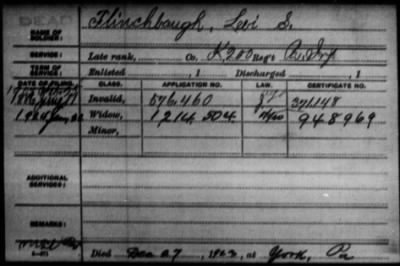 DEAD
NAME OF SOLDIER: Flinchbaugh, Levi S.
SERVICE: Late rank, Co. K, 200 Reg't Pa. Inf
TERM OF SERVICE: Enlisted , 1 Discharged , 1
DATE OF FILING. CLASS. APPLICATION NO. LAW. CERTIFICATE NO.
1886 Invalid, 576,460 371,148
1924 Jan Widow, 1214,504 948969
Minor,
ADDITIONAL SERVICES:
REMARKS:
Died Dec 27, 1923, at York, Pa